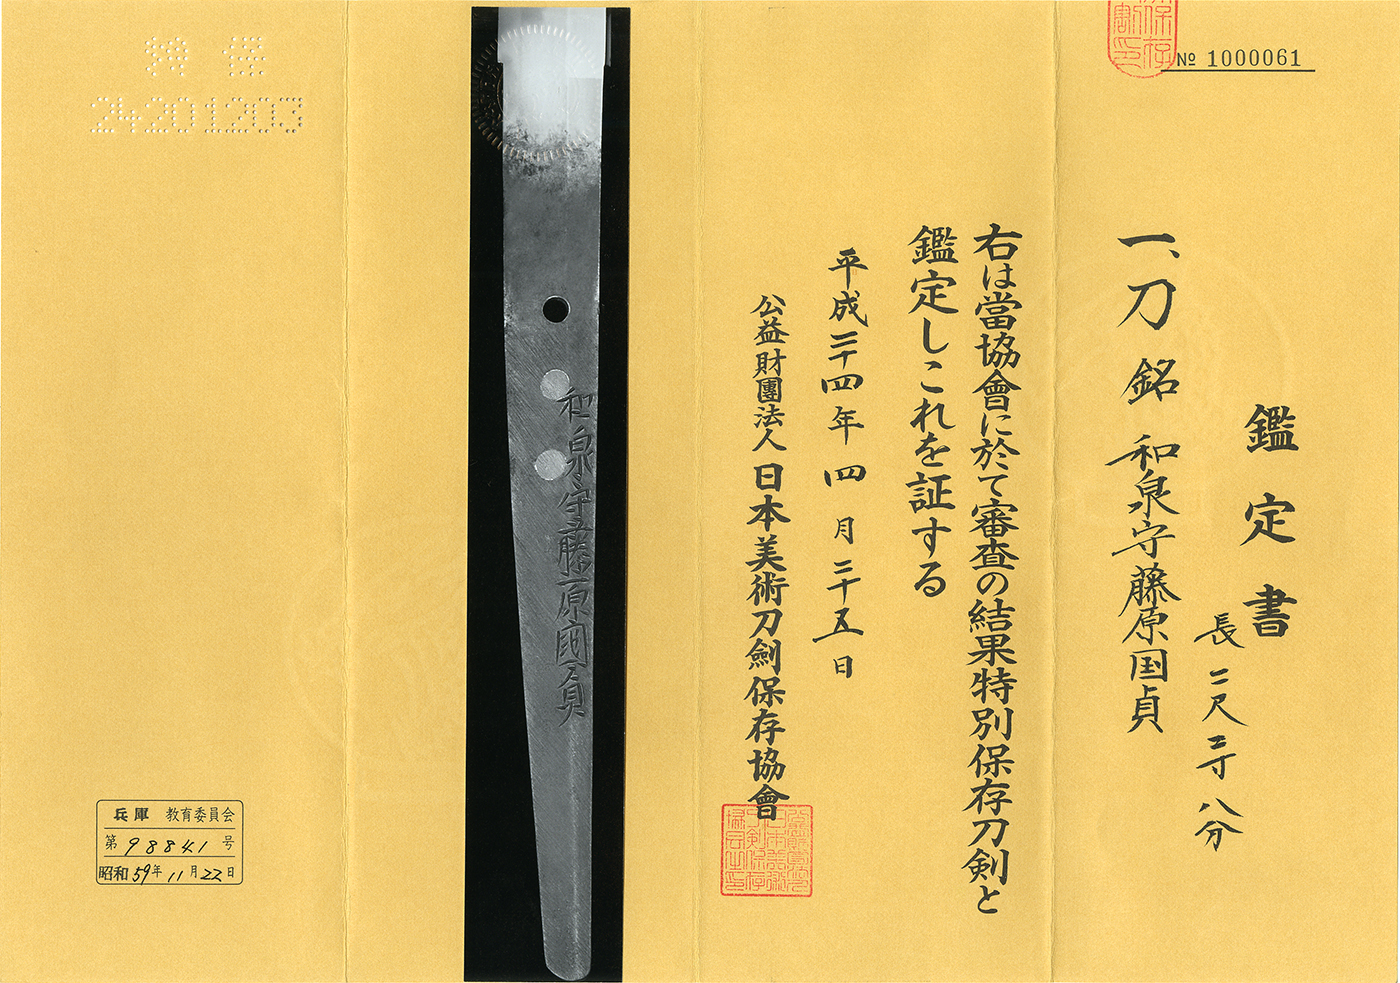 № 1000061
鑑定書
一、刀 銘 和泉守藤原国貞
長二尺二寸八分
右は當協會に於て審査の結果特別保存刀剣と
鑑定しこれを証する
平成二十四年四月二十五日
公益財團法人日本美術刀劍保存協會
和泉守藤原國貞
特保
24201203
兵庫 教育委員会
第98841号
昭和59年11月22日